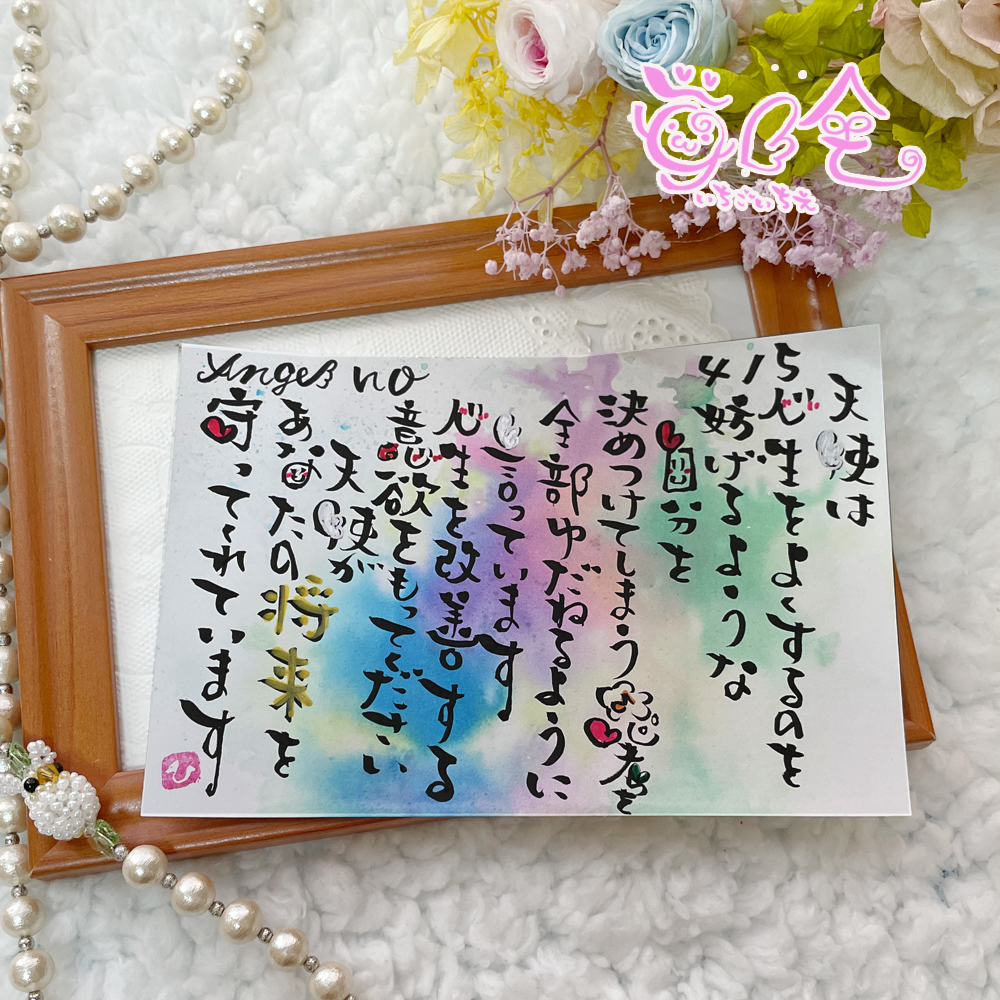 いちごいちえ
Angel no 415
天使は
心生をよくするのを
妨げるような
自分を
決めつけてしまう思考を
全部ゆだねるように
言っています
心生を改善する
意欲をもってください
天使が
あなたの将来を
守ってくれています